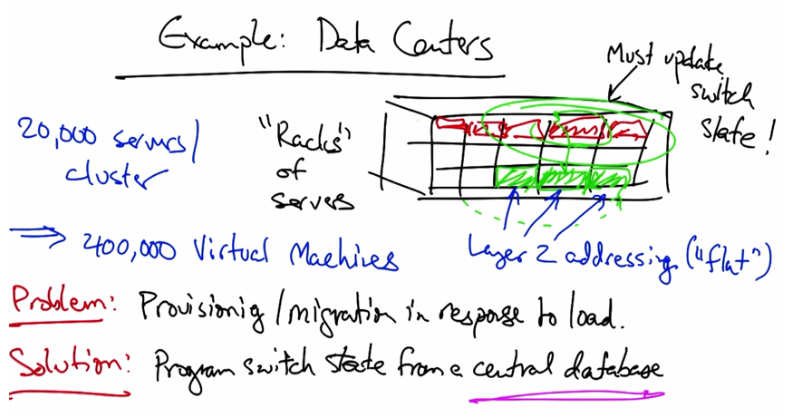 Example: Data Centers
Must update
switch
state!
20,000 servers/
cluster
"Racks"
of
servers
⇒ 400,000 Virtual Machines
Layer 2 addressing ("flat")
Problem: Provisionig/migration in response to load.
Solution: Program switch state from a central database